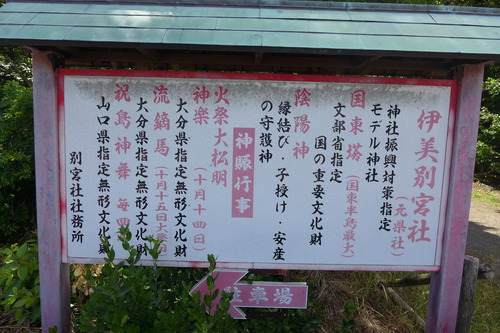 伊美別宮社(元県社)
神社振興対策指定
モデル神社
国東塔(国東半島最大)
文部省指定
国の重要文化財
陰陽神
縁結び・子授け・安産
の守護神
神賑行事
火祭大松明
神楽(十月十四日)
大分県指定無形文化財
流鏑馬(十月十五日大祭)
大分県指定無形文化財
祝島神舞 毎四
山口県指定無形文化
別宮社社務所
駐車場